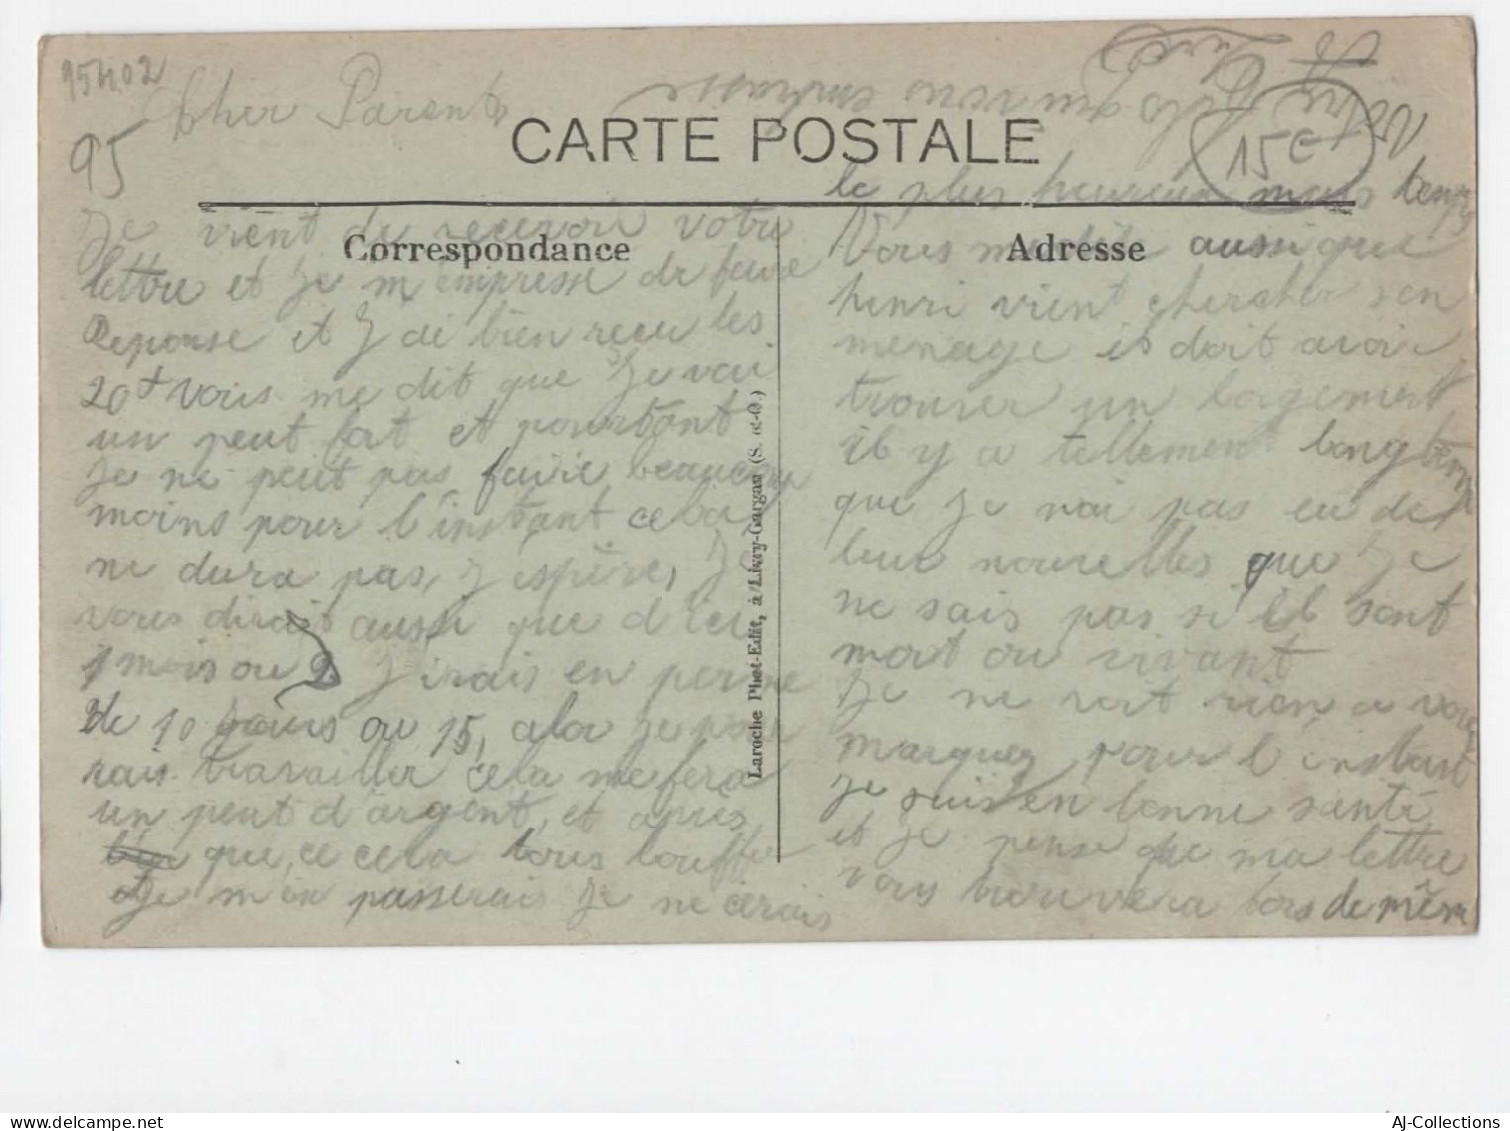 95402
95
15€
Cher Parents
CARTE POSTALE
Correspondance
Je vient de recevoir votre
lettre et Je m'empresse de faire
Reponse et J'ai bien reçu les
20f vous me dit que Je vai
un peut fort et pourtant
Je ne peut pas faire beaucoup
moins pour l'instant cela
ne dura pas, J'espère, Je
vous dirait aussi que d'ici
1 mois ou 2 J'irais en perme
de 10 Jours ou 15, alor Je pour
rais travailler cela me fera
un peut d'argent, et après
que ce cela vous
Je m'en passerais Je ne cerais
Laroche Phot-Edit, à Livry-Gargan (S.-et-O.)
Adresse
le plus heureux mais
Vous me dite aussi que
henri vient chercher s'en
menage il doit avoir
trouver un logement
il y a tellement longtemp
que Je n'ai pas eu de
leur nouvelles que Je
ne sais pas si il sont
mort ou vivant
Je ne voit rien a vous
marquer pour l'instant
Je suis en bonne santé
et Je pense que ma lettre
vous trouvera tous de mêm
Votre fils qui vous embrasse
AJ-Collections